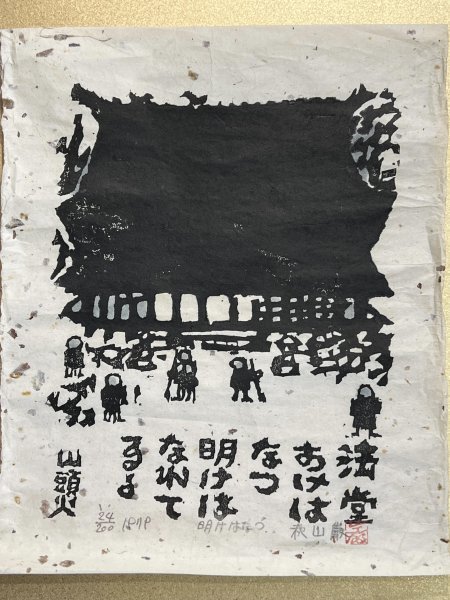 法堂
あけは
なつ
明けは
なれて
ゐる
山頭火
24/200
明けはなつ
秋山巌